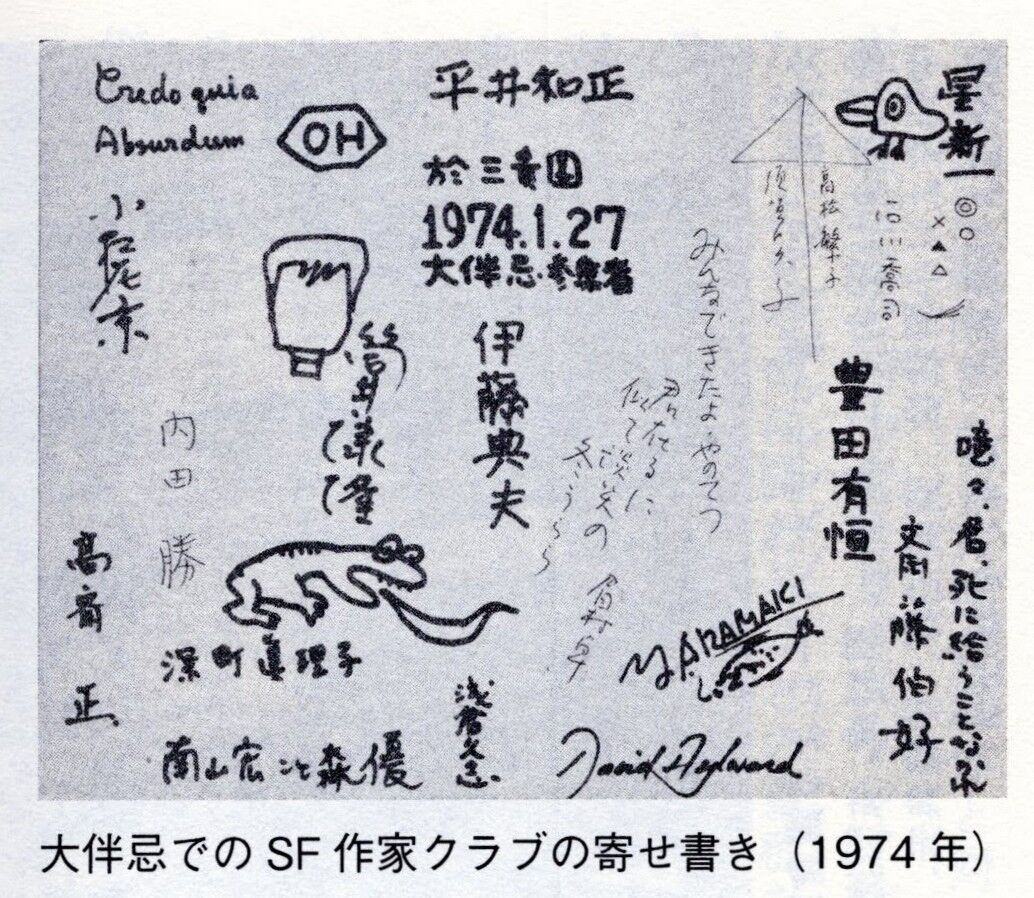 Credo quia
Absurdum
OH
平井和正
於三番町
1974.1.27
大伴忌参集者
星新一
高松繁子
石川喬司
みんなできたよ やのてつ
小松左京
筒井康隆
伊藤典夫
豊田有恒
内田 勝
高斎 正
深町眞理子
南山宏こと森優
浅倉久志
M. ARAMAKI
David Aylward
斎藤伯好
噫々、君、死に給うことなかれ
大伴忌での SF 作家クラブの寄せ書き（1974 年）